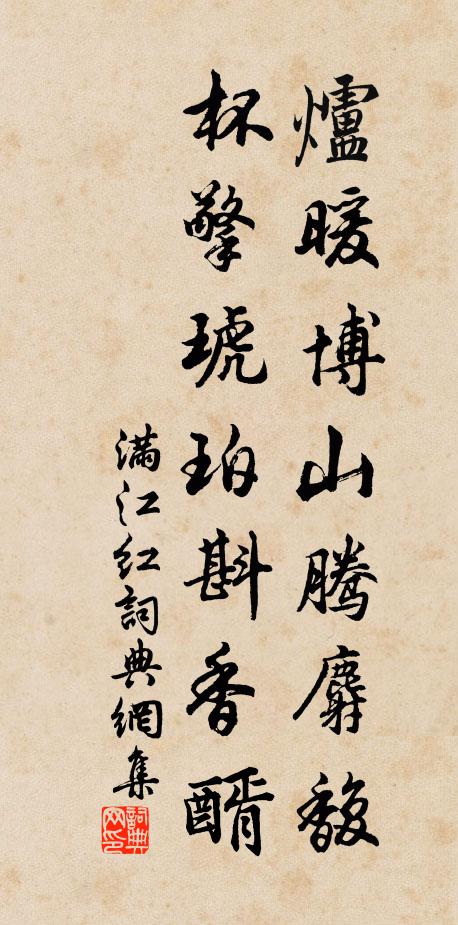 爐暖博山騰麝馥
杯擎琥珀斟香醑
滿江红詞典網集
詞典网印